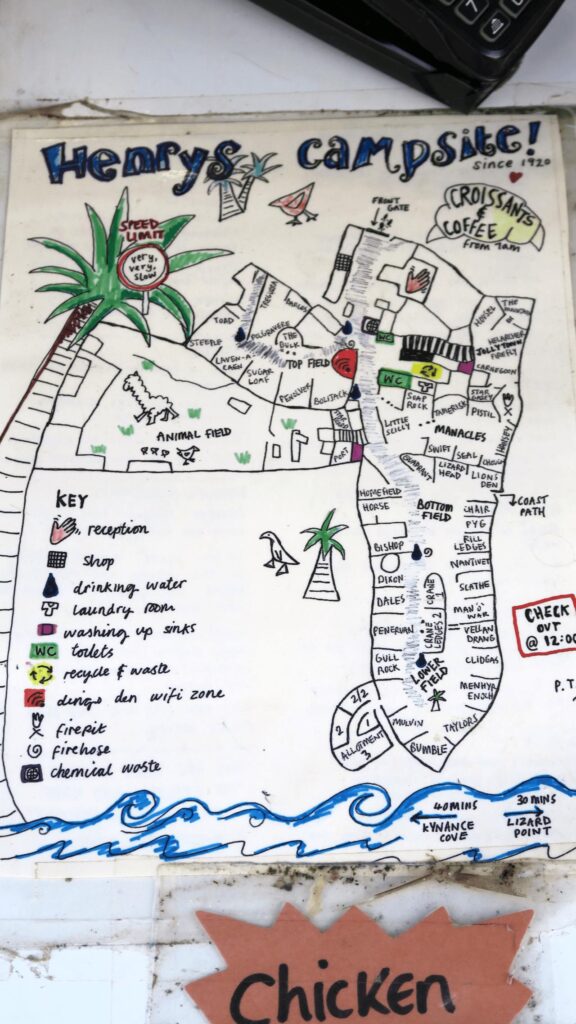 7
Henrys campsite!
since 1920
FRONT GATE
CROISSANTS
&
COFFEE!
from 7am
SPEED
LIMIT
very,
very,
slow
TOAD
STEEPLE
BARGES
THE
BULK
TOP FIELD
SUGAR
LOAF
PENOLVER
WC
WC
THE
JOLLYTOWN
FIREFLY
CARNEGOON
STAR
PISTIL
SOAP
ROCK
LITTLE
SCILLY
MANACLES
SWIFT
SEAL
CHOUGH
LIZARD
HEAD
LIONS
DEN
QUADRANT
PORT
ANIMAL FIELD
HOMEFIELD
HORSE
BISHOP
DIXON
DALES
PENERVAN
GULL
ROCK
BOTTOM
FIELD
CHAIR
PYG
RILL
LEDGES
NANTIVET
SLATHE
MAN O'
WAR
VELLAN
DRANG
CLIDGAS
MENHYR
ENJOH
TAYLORS
BUMBLE
MULVIN
CRANE
1
CRANE
LEDGES 2
LOWER
FIELD
2/2
2
1
ALLOTMENT
3
COAST
PATH
CHECK
OUT
@ 12:00
P.T
KEY
reception
shop
drinking water
laundry room
washing up sinks
WC toilets
recycle & waste
dingo den wifi zone
firepit
firehose
chemical waste
40 MINS
KYNANCE
COVE
30 MINS
LIZARD
POINT
Chicken